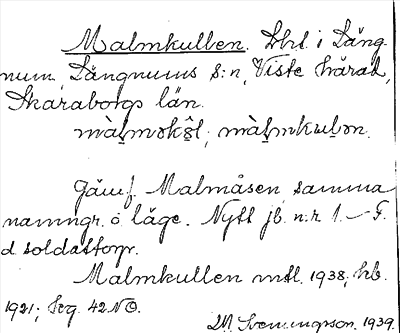 Malmkullen. Lht. i Lång-
num, Långnums s:n, Viste härad,
Skaraborgs län.
màl̥məkŏl; màl̥mkulən.
Jämf. Malmåsen samma
namngr. o läge. Nytt jb. n:r 1. – F.
d. soldattorp.
Malmkullen mtl. 1938; hb.
1921; Seg. 42 NO.
M. Svenungsson. 1939.